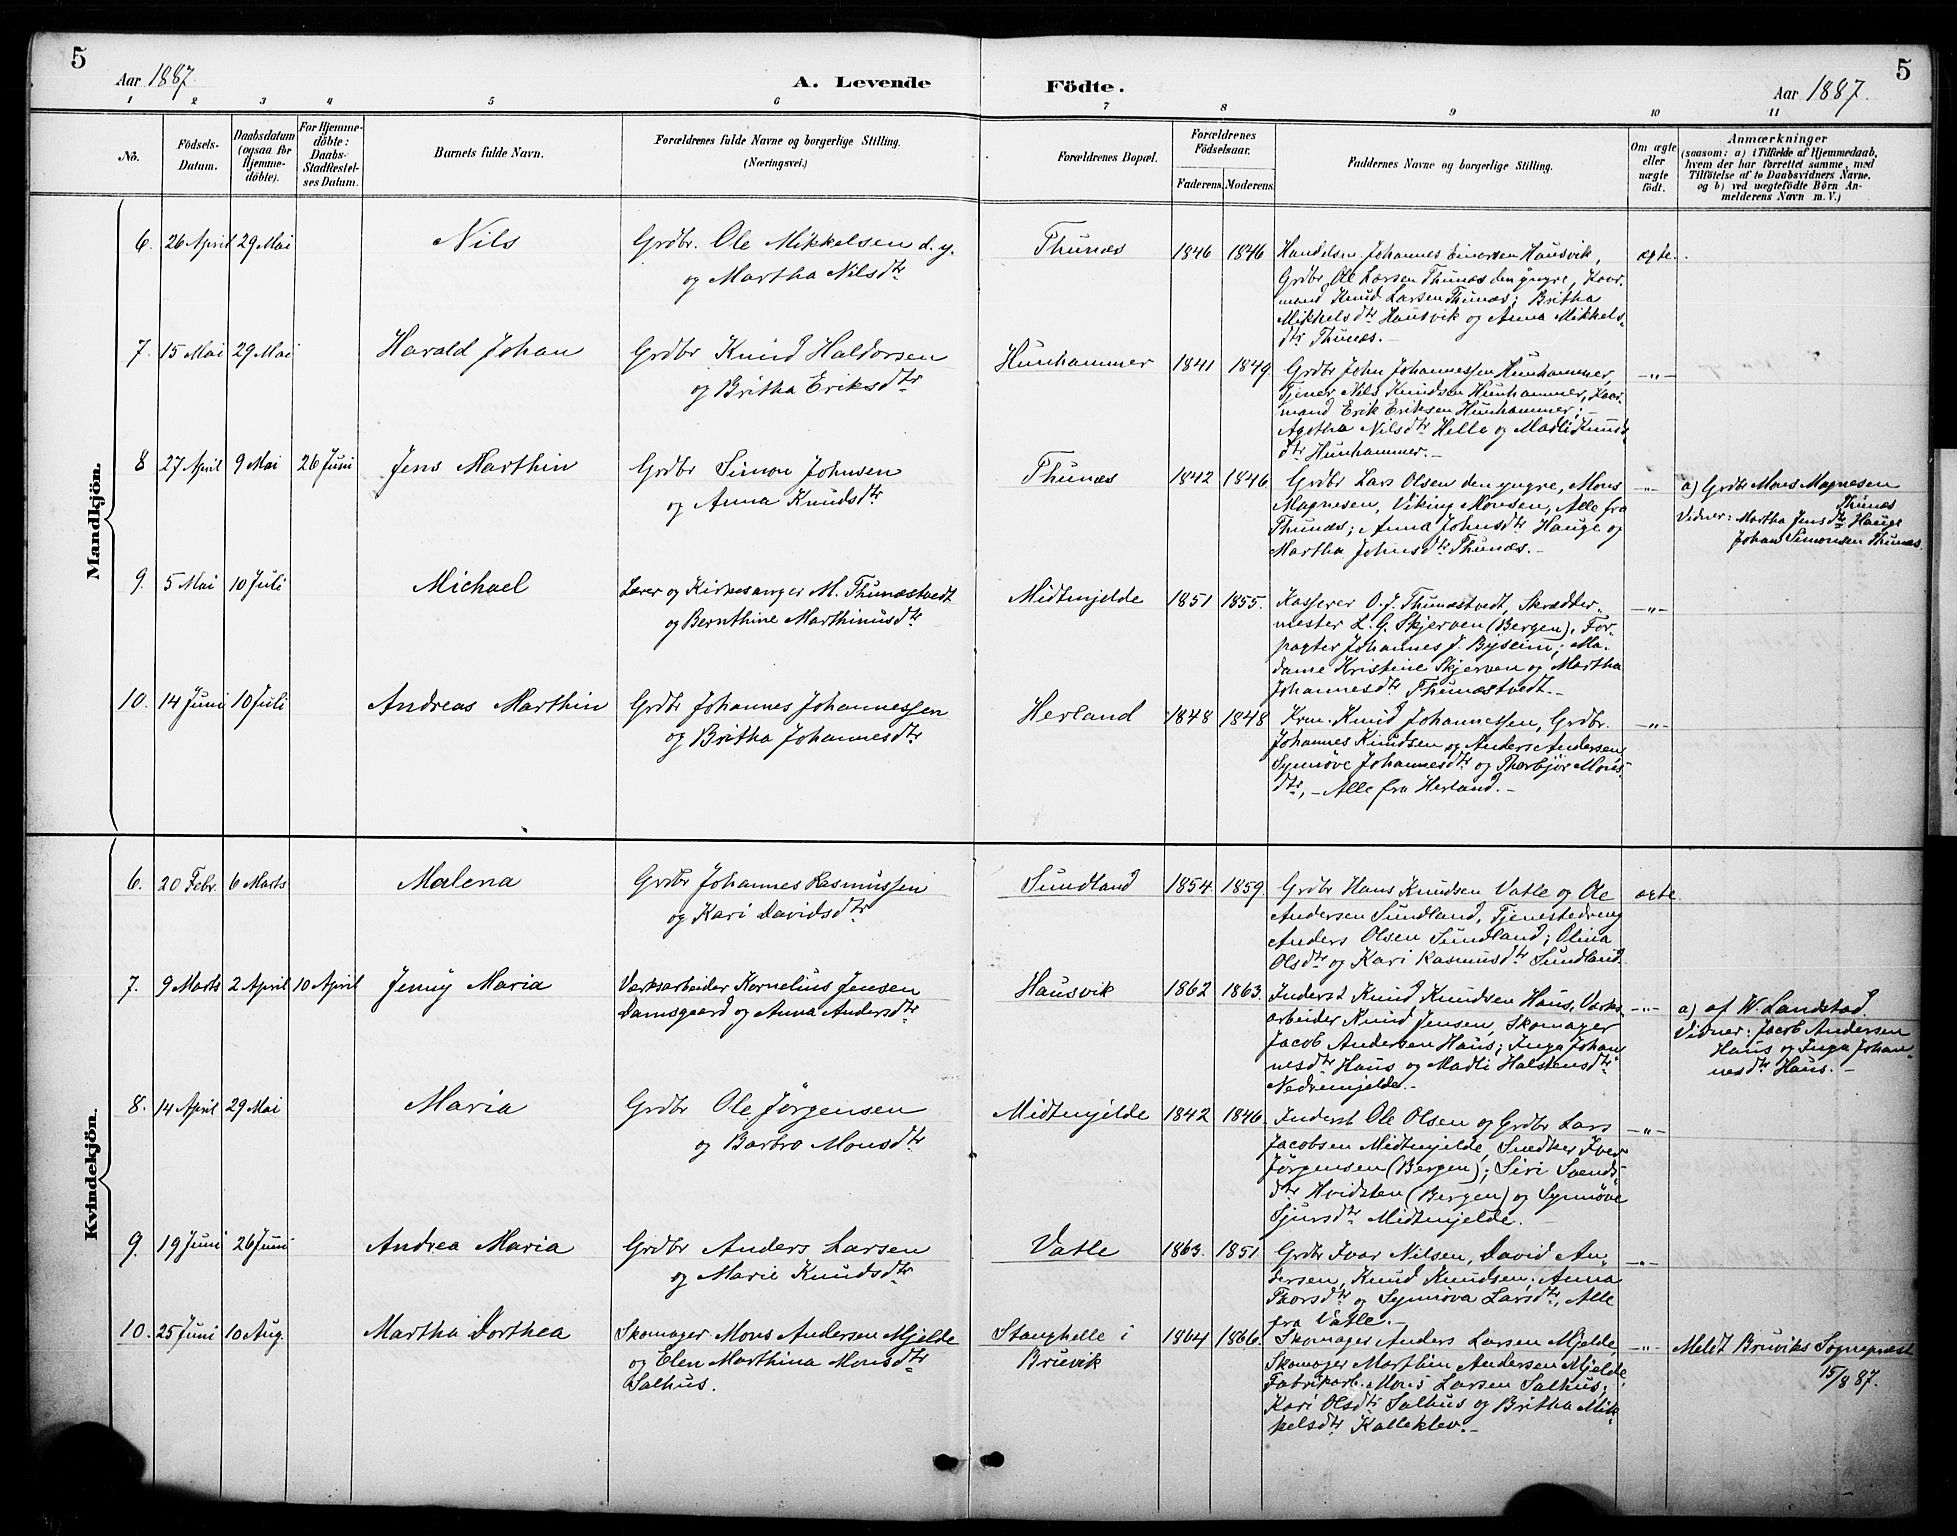 5
Aar 1887.
A. Levende
Födte.
Aar 1887.
5
1 2 3 4 5 6 7 8 9 10 11
No.
Födsels-
Datum.
Daabsdatum
(ogsaa for
Hjemme-
döbte).
For Hjemme-
döbte:
Daabs-
Stadfæstel-
ses Datum.
Barnets fulde Navn.
Forældrenes fulde Navne og borgerlige Stilling.
(Næringsvei.)
Forældrenes Bopæl.
Forældrenes
Födselsaar.
Faderens. Moderens.
Faddernes Navne og borgerlige Stilling.
Om ægte
eller
uægte
födt.
Anmærkninger
(saasom: a) i Tilfælde af Hjemmedaab,
hvem der har forrettet samme, med
Tilföielse af to Daabsvidners Navne.
og b) ved uægtefödte Börn An-
melderens Navn m. V.)
Mandkjön.
6. 26 April 29 Mai
Nils
Grdbr. Ole Mikkelsen d. y.
og Martha Nilsdtr
Thunæs
1846 1846
Handelsm. Johannes Einarsen Hausvik,
Grdbr. Ole Larsen Thunæs den yngre, Kaar-
mand Knud Larsen Thunæs; Britha
Mikkelsdtr Hausvik og Anna Mikkels-
dtr Thunæs.-
ægte.
7. 15 Mai 29 Mai
Harald Johan
Grdbr Knud Haldorsen
og Britha Eriksdtr
Hunhammer
1841 1849
Grdbr John Johannessen Hunhammer,
Tjener Nils Knudsen Hunhammer, Kaar-
mand Erik Eriksen Hunhammer;
Agatha Nilsdtr Helle og Madli Knuds-
dtr Hunhammer.-
-"-
8 27 April 9 Mai 26 Juni
Jens Marthin
Grdbr Simon Johnsen
og Anna Knudsdtr
Thunæs
1842 1846
Grdbr Lars Olsen den yngre, Mons
Magnesen, Viking Monsen, Alle fra
Thunæs; Anna Johnsdtr Hauge og
Martha Johnsdtr Thunæs.-
-"-
a) Grdbr Mons Magnesen
Thunæs
Vidner: Martha Jensdtr Hauge
Johan Simonsen Thunæs.
9. 5 Mai 10 Juli
Michael
Lærer og Kirkesanger M. Thunæstvedt
og Bernthine Marthinusdtr
Midtmjelde
1851 1855.
Kasserer O. J. Thunæstvedt, Skrædder-
mester L. G. Skjerven (Bergen), For-
pagter Johannes J. Byseim; Ma-
dame Kristine Skjerven og Martha
Johannesdtr Thunæstvedt.-
-"-
10. 14 Juni 10 Juli
Andreas Marthin
Grdbr Johannes Johannessen
og Britha Johannesdtr
Herland
1848 1848
Krm. Knud Johannessen, Grdbr.
Johannes Knudsen og Anders Andersen,
Synnøve Johannesdtr og Thorbjør Mons-
dtr, - Alle fra Herland.-
-"-
Kvindekjön.
6. 20 Febr. 6 Marts
Malena
Grdbr Johannes Rasmussen
og Kari Davidsdtr
Sundland
1854. 1859.
Grdbr Hans Knudsen Vatle og Ole
Andersen Sundland, Tjenestedreng
Anders Olsen Sundland; Olina
Olsdtr og Kari Rasmusdtr Sundland
ægte.
7. 9 Marts 2 April 10 April
Jenny Maria
Værksarbeider Kornelius Jensen
Damsgaard og Anna Andersdtr
Hausvik
1862 1863.
Inderst Knud Knudsen Haus, Værks-
arbeider Knud Jensen, Skomager
Jacob Andersen Haus; Inga Johan-
nesdtr Haus og Madli Halstensdtr
Nedremjelde.-
-"-
a) af W. Landstad.
Vidner: Jacob Andersen
Haus og Inga Johan-
nesdtr Haus.-
8. 14 April 29 Mai
Maria
Grdbr Ole Jörgensen
og Barbro Monsdtr
Midtmjelde
1842 1846.
Inderst Ole Olsen og Grdbr Lars
Jacobsen Midtmjelde, Snedker Iver
Jörgensen (Bergen); Siri Svends-
dtr Hvidsten (Bergen) og Synnøve
Sjursdtr Midtmjelde.
-"-
9 19 Juni 26 Juni
Andrea Maria
Grdbr Anders Larsen
og Marie Knudsdtr
Vatle
1863. 1851.
Grdbr Ivar Nilsen, David An-
dersen, Knud Knudsen; Anna
Thorsdtr og Synnøva Larsdtr, Alle
fra Vatle.-
-"-
10. 25 Juni 10 Aug.
Martha Dorthea
Skomager Mons Andersen Mjelde
og Elen Marthina Monsdtr
Salhus.
Stanghelle i
Bruvik
1864 1866.
Skomager Anders Larsen Mjelde,
Skomager Marthin Andersen Mjelde,
Fabrikarb. Mons Larsen Salhus;
Kari Olsdtr Salhus og Britha Mik-
kelsdtr Kalleklev.-
-"-
Meldt Bruviks Sognepræst
15/8 87.